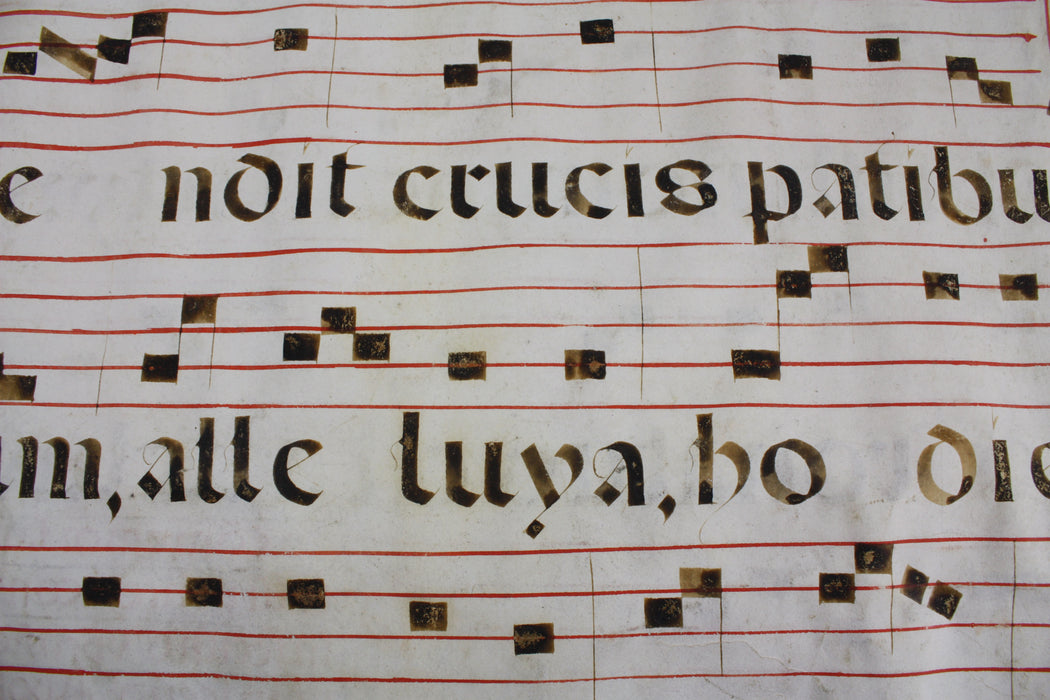 e ndit crucis patibu
m, alle luya, ho die